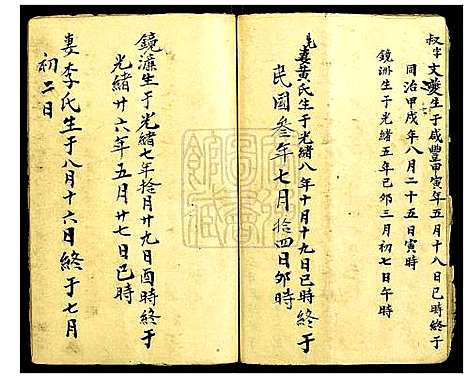 叔字文夔生于咸豐甲寅年五月十八日巳時終于
同治甲戌年八月二十五日寅時
鏡洲生于光緒五年己卯三月初七日午時
妻黃氏生于光緒八年十月十九日巳時終于
民國叁年七月拾四日卯時
鏡濂生于光緒七年拾月廿九日酉時終于
光緒廿六年五月廿七日巳時
妻李氏生于八月十六日終于七月
初二日